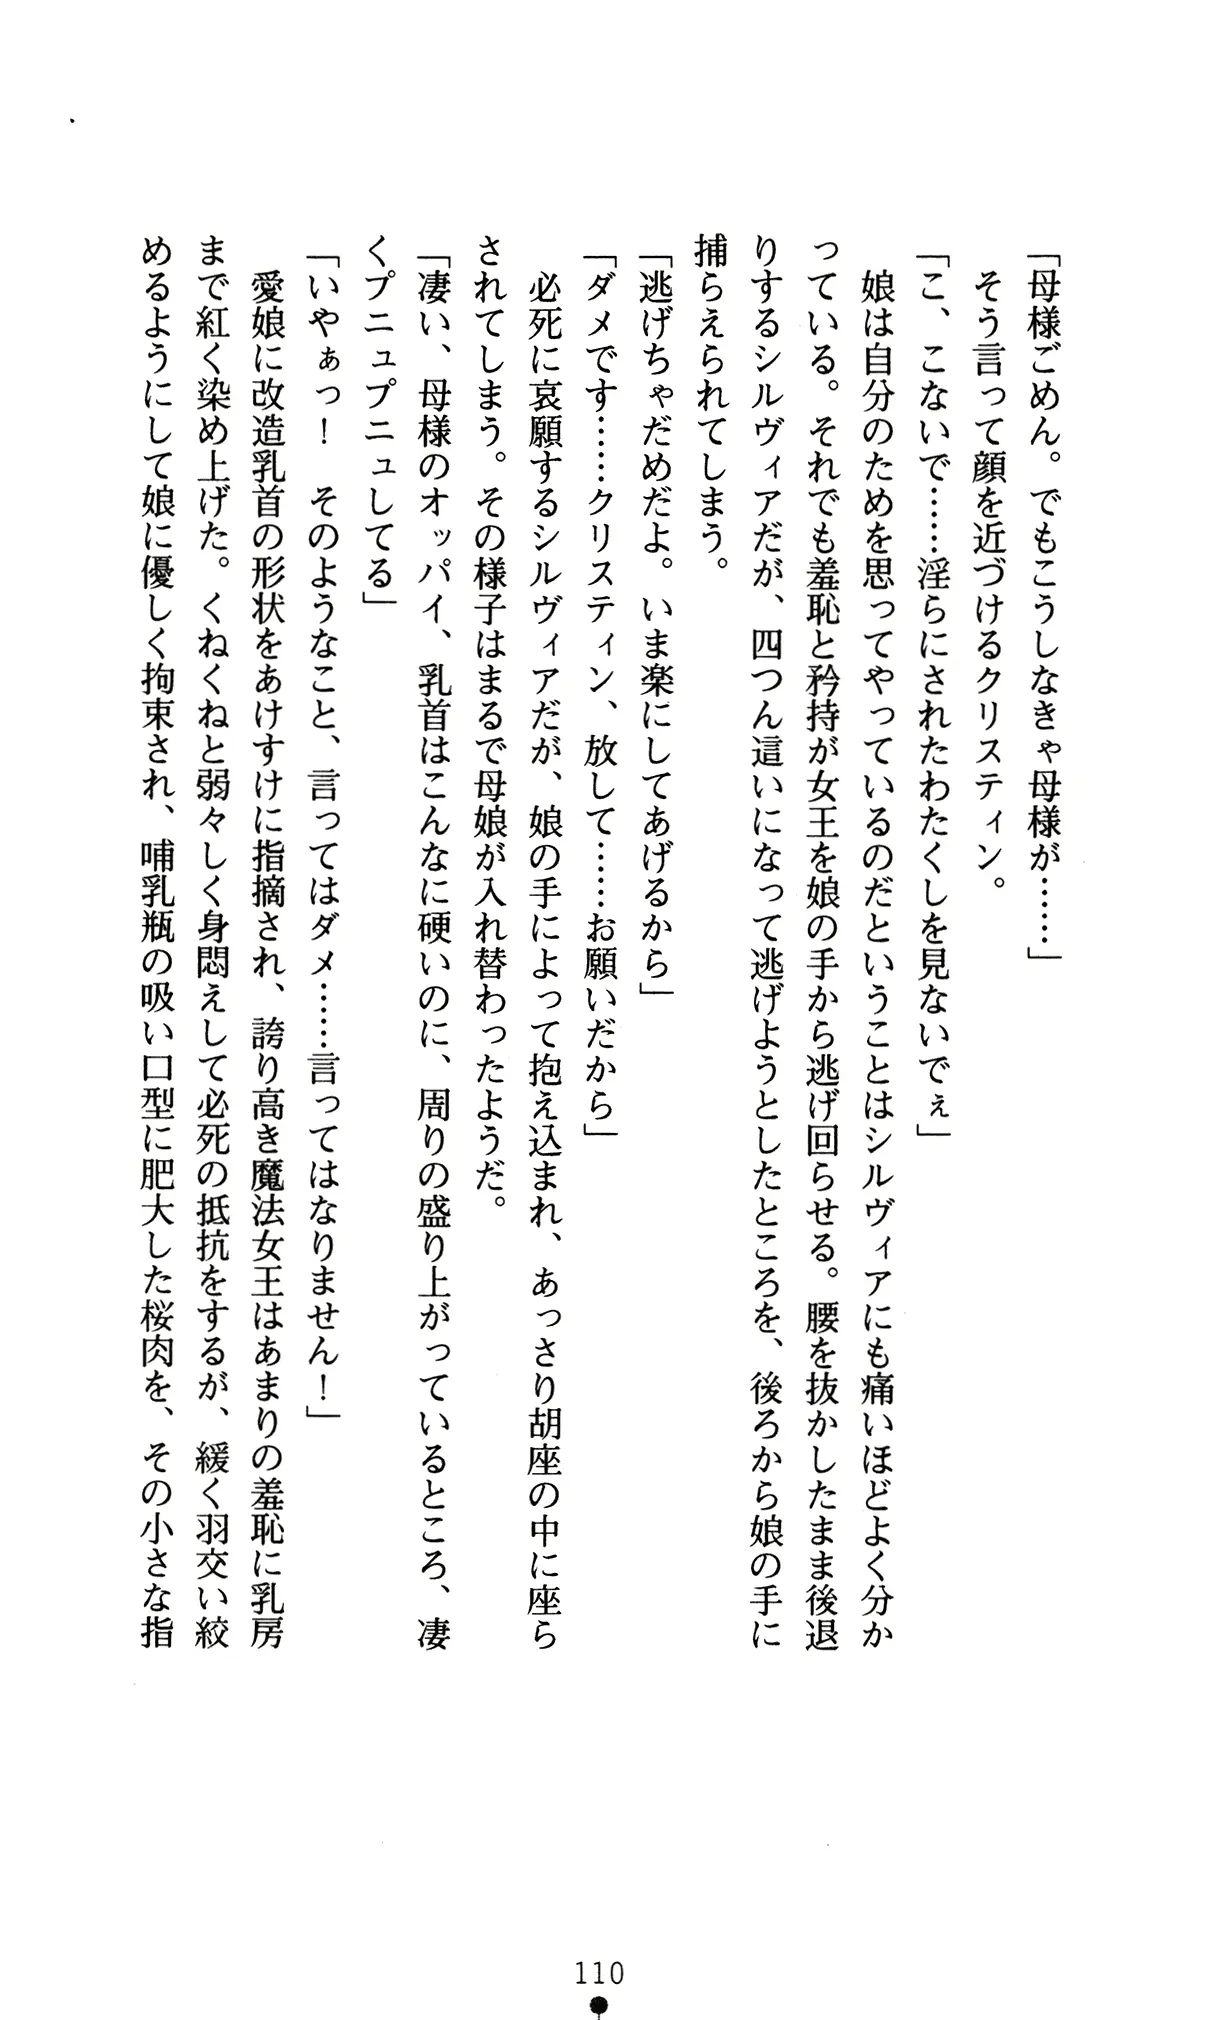 「母様ごめん。でもこうしなきゃ母様が……」
　そう言って顔を近づけるクリスティン。
「こ、こないで……淫らにされたわたくしを見ないでぇ」
　娘は自分のためを思ってやっているのだということはシルヴィアにも痛いほどよく分か
っている。それでも羞恥と矜持が女王を娘の手から逃げ回らせる。腰を抜かしたまま後退
りするシルヴィアだが、四つん這いになって逃げようとしたところを、後ろから娘の手に
捕らえられてしまう。
「逃げちゃだめだよ。いま楽にしてあげるから」
「ダメです……クリスティン、放して……お願いだから」
　必死に哀願するシルヴィアだが、娘の手によって抱え込まれ、あっさり胡座の中に座ら
されてしまう。その様子はまるで母娘が入れ替わったようだ。
「凄い、母様のオッパイ、乳首はこんなに硬いのに、周りの盛り上がっているところ、凄
くプニュプニュしてる」
「いやぁっ！　そのようなこと、言ってはダメ……言ってはなりません！」
　愛娘に改造乳首の形状をあけすけに指摘され、誇り高き魔法女王はあまりの羞恥に乳房
まで紅く染め上げた。くねくねと弱々しく身悶えして必死の抵抗をするが、緩く羽交い絞
めるようにして娘に優しく拘束され、哺乳瓶の吸い口型に肥大した桜肉を、その小さな指
110